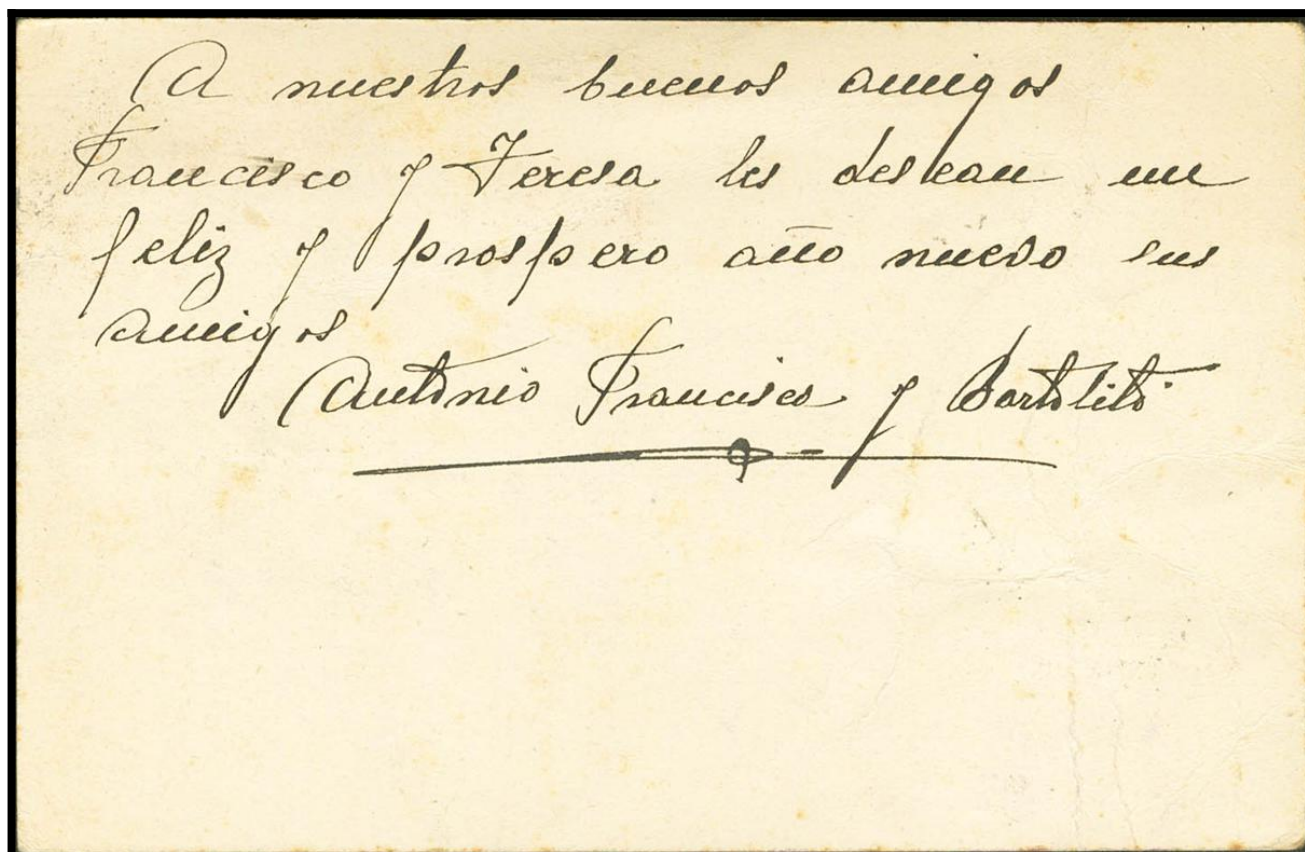 A nuestros buenos amigos
Francisco y Teresa les desean un
feliz y prospero año nuevo sus
amigos
Antonio Francisca y Bartolito